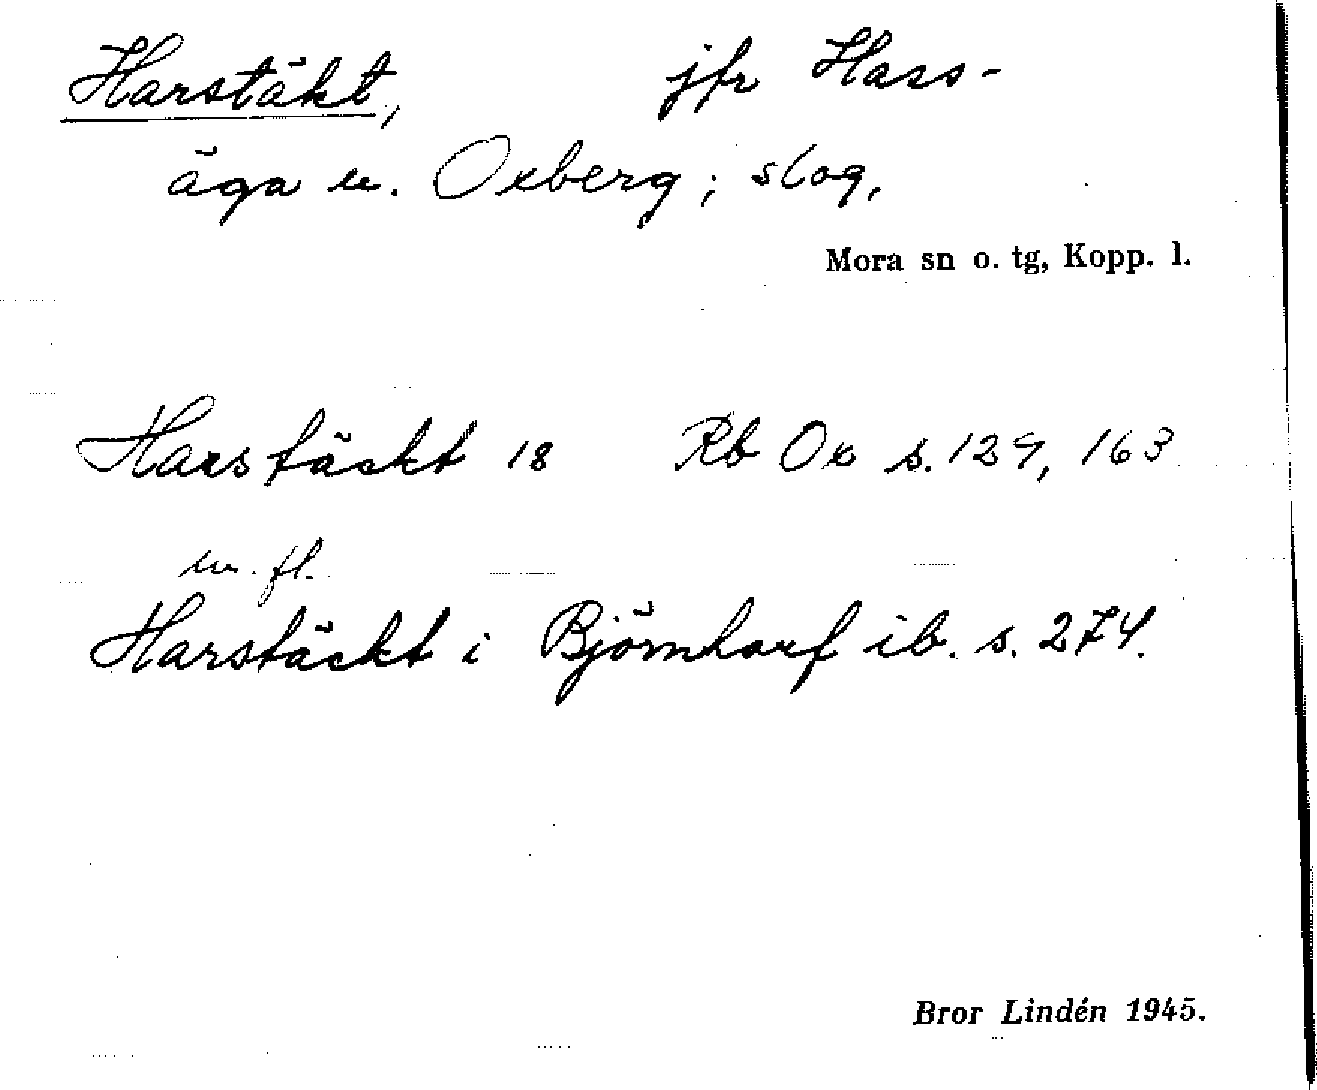 Harstäkt, jfr Hass-
äga u. Oxberg; slog,
Mora sn o. tg, Kopp. l.
Harstäckt 18 Rb Ox s. 129, 163
m. fl.
Harstäckt i Björnharf ib. s. 274.
Bror Lindén 1945.